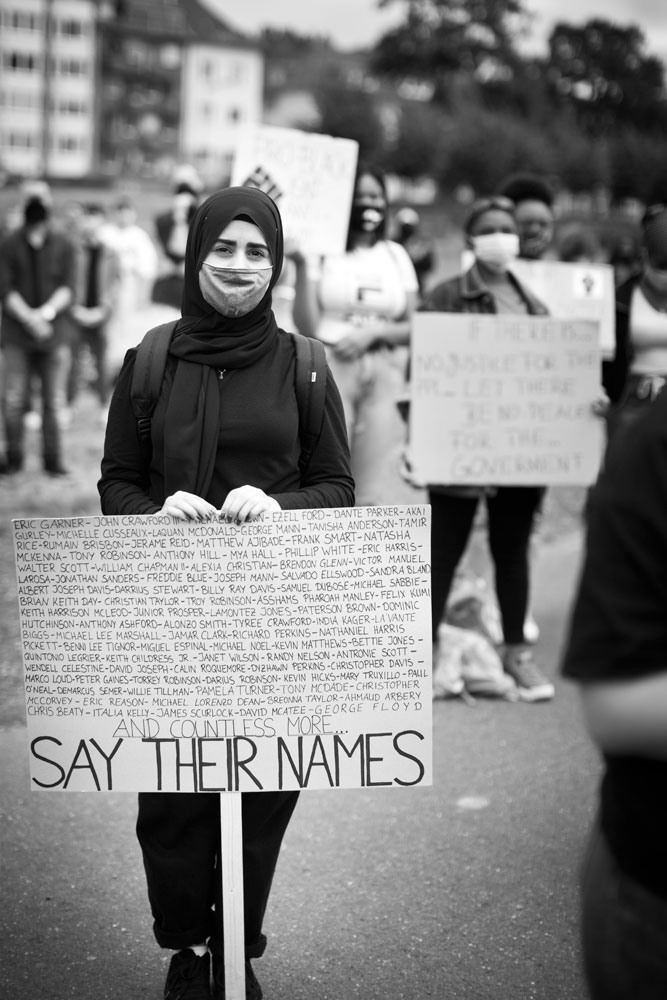 ERIC GARNER- JOHN CRAWFORD III- MICHAEL BROWN- EZELL FORD- DANTE PARKER- AKAI
GURLEY- MICHELLE CUSSEAUX- LAQUAN MCDONALD- GEORGE MANN- TANISHA ANDERSON- TAMIR
RICE- RUMAIN BRISBON- JERAME REID- MATTHEW AJIBADE- FRANK SMART- NATASHA
MCKENNA- TONY ROBINSON- ANTHONY HILL- MYA HALL- PHILLIP WHITE- ERIC HARRIS-
WALTER SCOTT- WILLIAM CHAPMAN II- ALEXIA CHRISTIAN- BRENDON GLENN- VICTOR MANUEL
LAROSA- JONATHAN SANDERS- FREDDIE BLUE- JOSEPH MANN- SALVADO ELLSWOOD- SANDRA BLAND
ALBERT JOSEPH DAVIS- DARRIUS STEWART- BILLY RAY DAVIS- SAMUEL DUBOSE- MICHAEL SABBIE-
BRIAN KEITH DAY- CHRISTIAN TAYLOR- TROY ROBINSON- ASSHAMS PHAROAH MANLEY- FELIX KUMI
KEITH HARRISON MCLEOD- JUNIOR PROSPER- LAMONTEZ JONES- PATERSON BROWN- DOMINIC
HUTCHINSON- ANTHONY ASHFORD- ALONZO SMITH- TYREE CRAWFORD- INDIA KAGER- LA'VANTE
BIGGS- MICHAEL LEE MARSHALL- JAMAR CLARK- RICHARD PERKINS- NATHANIEL HARRIS
PICKETT- BENNI LEE TIGNOR- MIGUEL ESPINAL- MICHAEL NOEL- KEVIN MATTHEWS- BETTIE JONES-
QUINTONIO LEGRIER- KEITH CHILDRESS JR.- JANET WILSON- RANDY NELSON- ANTRONIE SCOTT-
WENDELL CELESTINE- DAVID JOSEPH- CALIN ROQUEMORE- DYZHAWN PERKINS- CHRISTOPHER DAVIS-
MARCO LOUD- PETER GAINES- TORREY ROBINSON- DARIUS ROBINSON- KEVIN HICKS- MARY TRUXILLO- PAUL
O'NEAL- DEMARCUS SEMER- WILLIE TILLMAN- PAMELA TURNER- TONY MCDADE- CHRISTOPHER
MCCORVEY- ERIC REASON- MICHAEL LORENZO DEAN- BREONNA TAYLOR- AHMAUD ARBERY
CHRIS BEATY- ITALIA KELLY- JAMES SCURLOCK- DAVID MCATEE- GEORGE FLOYD
AND COUNTLESS MORE...
SAY THEIR NAMES
PRO BLACK
IF THERE IS...
NO JUSTICE FOR THE
PPL... LET THERE
BE NO PEACE
FOR THE...
GOVERMENT